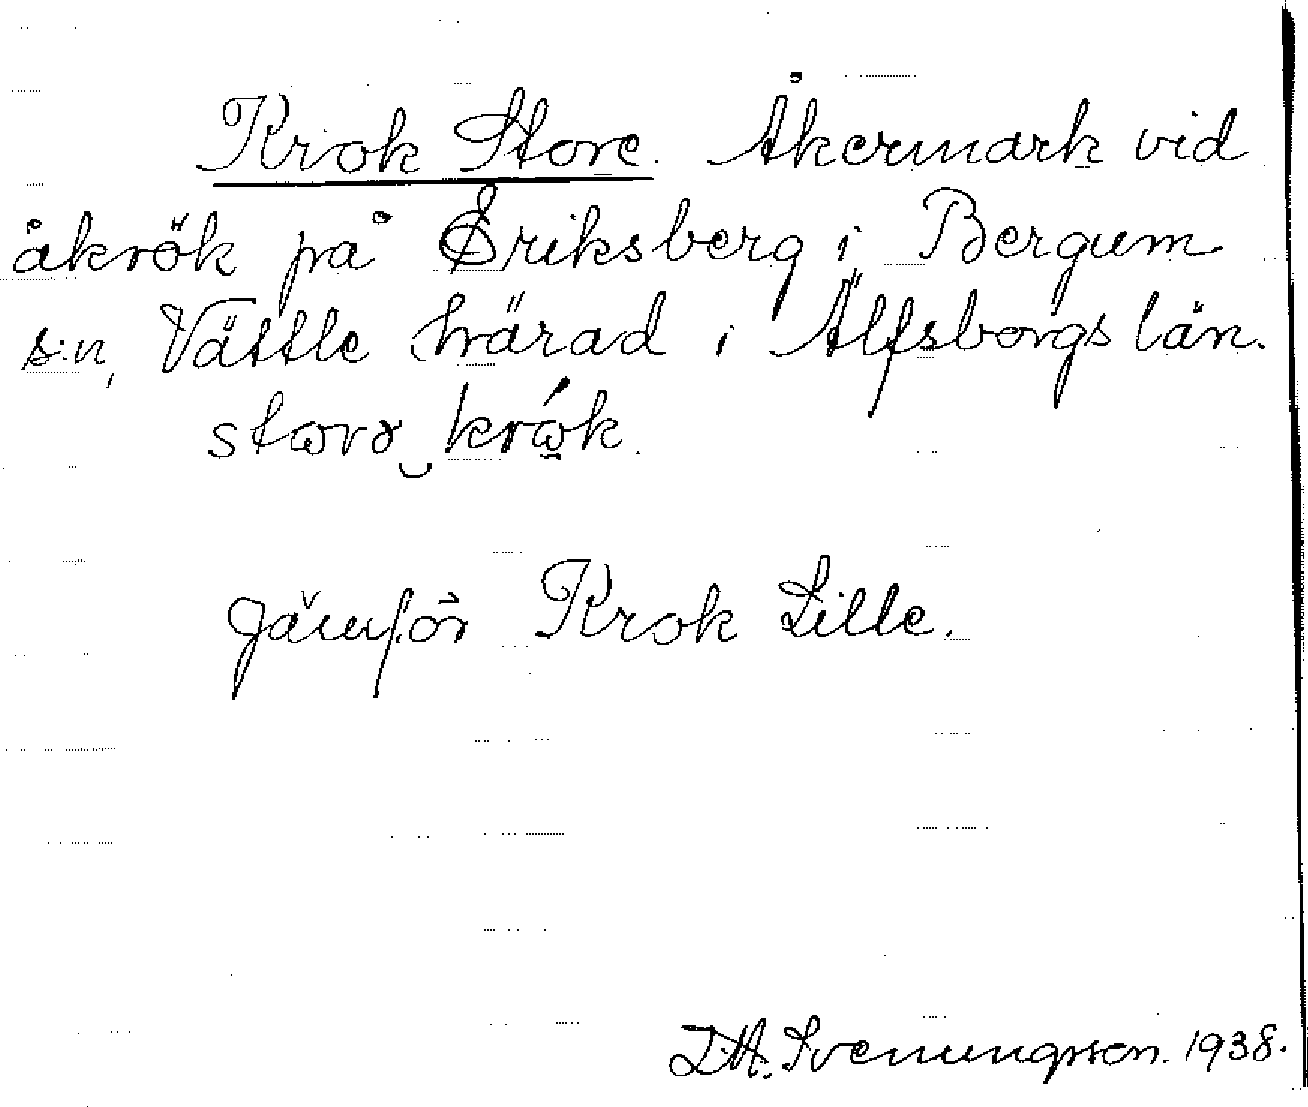 Krok Store. Åkermark vid
åkrök på Eriksberg i Bergum
s:n, Vättle härad i Älfsborgs län.
storə‿krók.
Jämför Krok Lille.
Svenungsson. 1938.